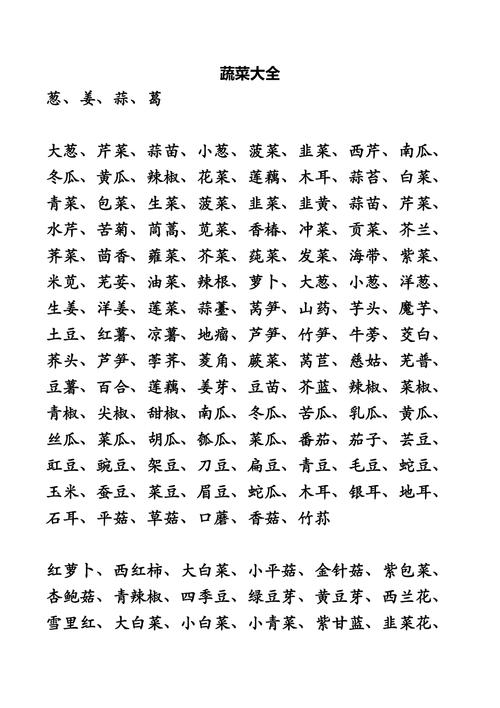 蔬菜大全
葱、姜、蒜、葛
大葱、芹菜、蒜苗、小葱、菠菜、韭菜、西芹、南瓜、
冬瓜、黄瓜、辣椒、花菜、莲藕、木耳、蒜苔、白菜、
青菜、包菜、生菜、菠菜、韭菜、韭黄、蒜苗、芹菜、
水芹、苦菊、茼蒿、苋菜、香椿、冲菜、贡菜、芥兰、
荠菜、茴香、蕹菜、芥菜、莼菜、发菜、海带、紫菜、
米苋、芫荽、油菜、辣根、萝卜、大葱、小葱、洋葱、
生姜、洋姜、莲菜、蒜薹、莴笋、山药、芋头、魔芋、
土豆、红薯、凉薯、地瘤、芦笋、竹笋、牛蒡、茭白、
荞头、芦笋、荸荠、菱角、蕨菜、莴苣、慈姑、芜普、
豆薯、百合、莲藕、姜芽、豆苗、芥蓝、辣椒、菜椒、
青椒、尖椒、甜椒、南瓜、冬瓜、苦瓜、乳瓜、黄瓜、
丝瓜、菜瓜、胡瓜、瓠瓜、菜瓜、番茄、茄子、芸豆、
豇豆、豌豆、架豆、刀豆、扁豆、青豆、毛豆、蛇豆、
玉米、蚕豆、菜豆、眉豆、蛇瓜、木耳、银耳、地耳、
石耳、平菇、草菇、口蘑、香菇、竹荪
红萝卜、西红柿、大白菜、小平菇、金针菇、紫包菜、
杏鲍菇、青辣椒、四季豆、绿豆芽、黄豆芽、西兰花、
雪里红、大白菜、小白菜、小青菜、紫甘蓝、韭菜花、